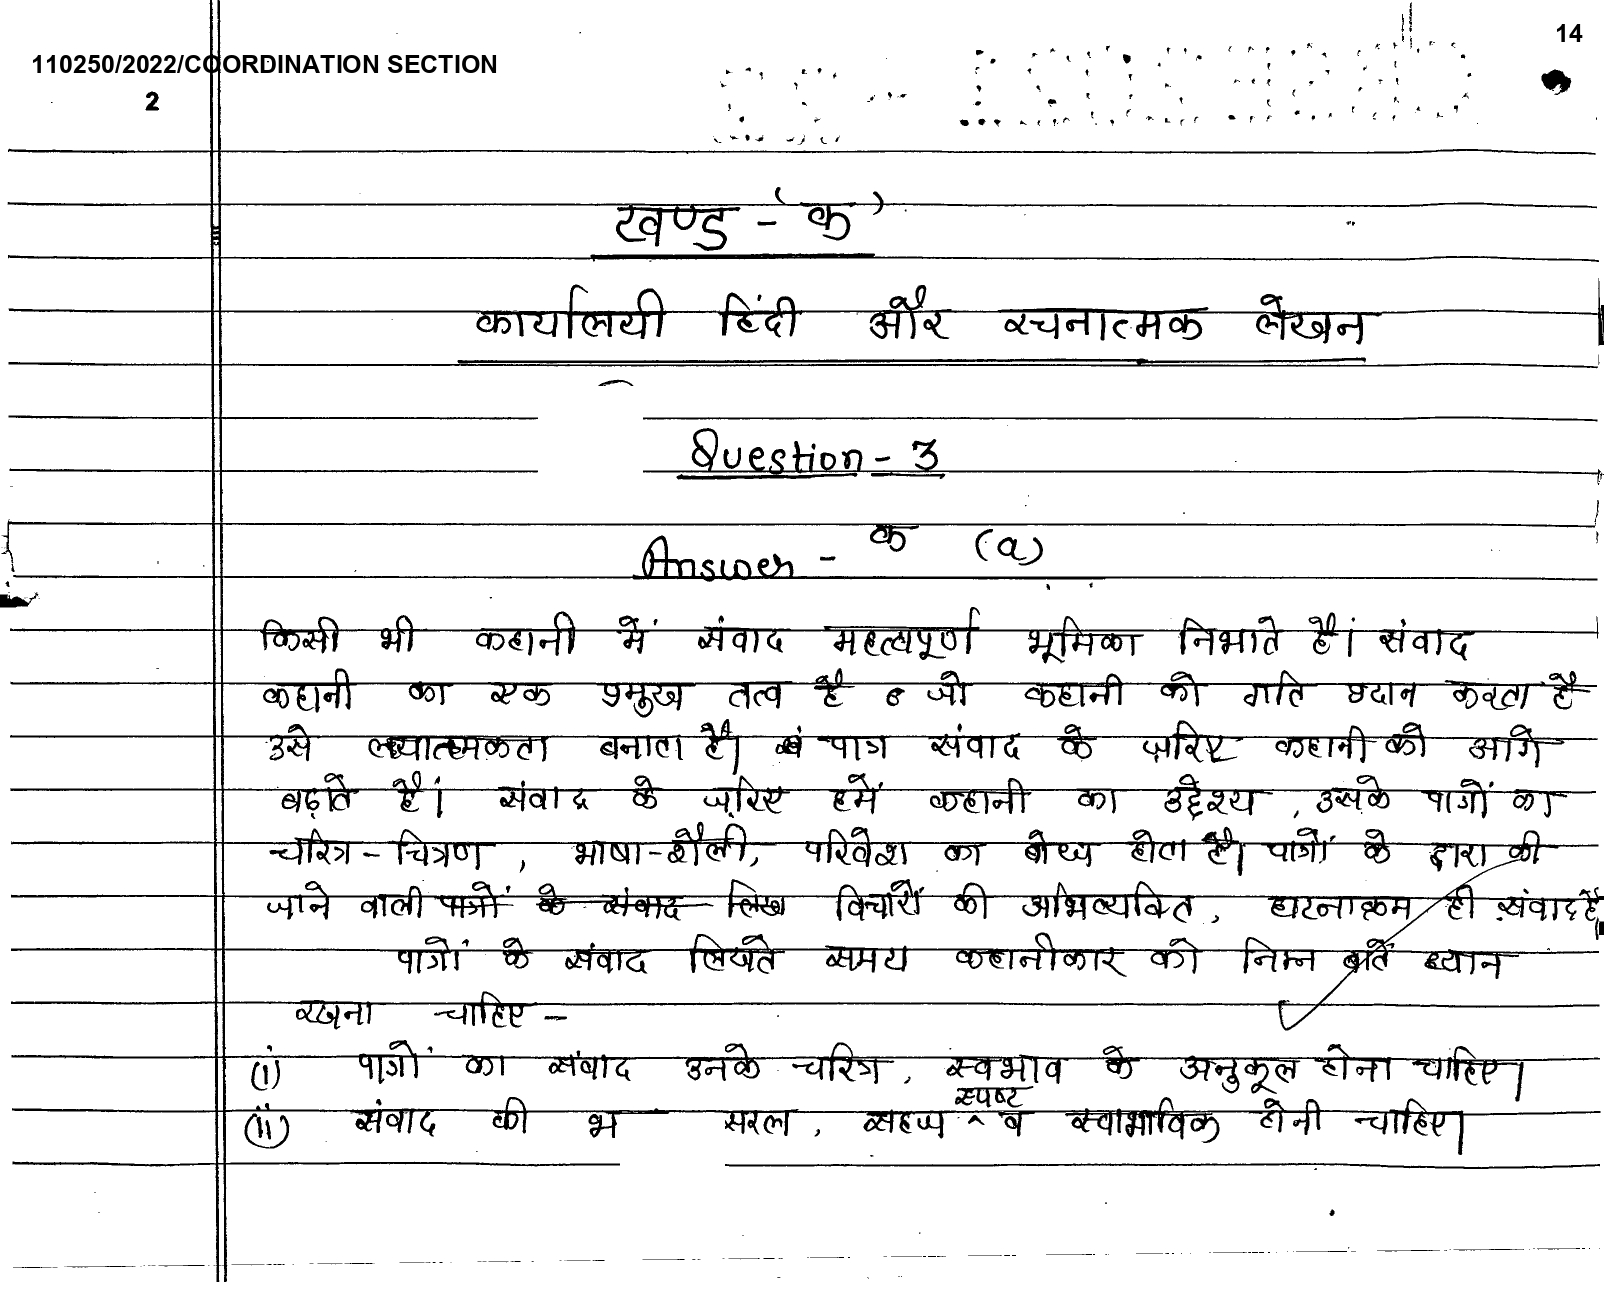 14
110250/2022/COORDINATION SECTION
2
खण्ड - 'क'
कार्यालयी हिंदी और रचनात्मक लेखन
Question - 3
Answer - क (a)
किसी भी कहानी में संवाद महत्वपूर्ण भूमिका निभाते हैं। संवाद
कहानी का एक प्रमुख तत्व है जो कहानी को गति प्रदान करता है
उसे लयात्मकता बनाता है। पात्र संवाद के ज़रिए कहानी को आगे
बढ़ाते हैं। संवाद के ज़रिए हमें कहानी का उद्देश्य, उसके पात्रों का
चरित्र-चित्रण, भाषा-शैली, परिवेश का बोध होता है। पात्रों के द्वारा की
जाने वाली पात्रों के संवाद लिख विचारों की अभिव्यक्ति, घटनाक्रम ही संवाद है
पात्रों के संवाद लिखते समय कहानीकार को निम्न बातें ध्यान
रखना चाहिए -
(i) पात्रों का संवाद उनके चरित्र, स्वभाव के अनुकूल होना चाहिए।
(ii) संवाद की भ सरल, सहज ^ स्पष्ट व स्वाभाविक होनी चाहिए।